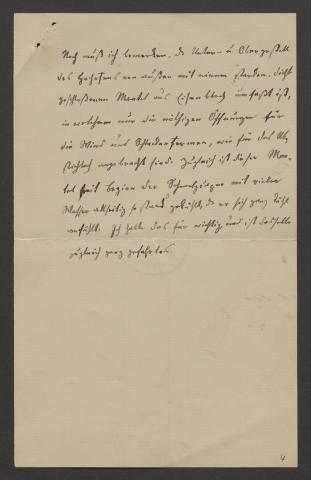 Noch muß ich bemerken, daß Unter- u Obergestell
des Hochofens von außen mit einem starken, dicht
geschlossenen Mantel aus Eisenblech umfaßt ist,
in welchem nur die nöthigen Öffnungen für
die Wind- und Schlackenformen, wie für das Ab-
stichloch angebracht sind. Zugleich ist dieser Man-
tel seit Beginn der Schmelzung mit vielem
Wasser allseitig so stark gekühlt, daß er sich ganz kühl
anfühlt. Ich halte das für wichtig und ist dasselbe
zugleich ganz gefahrlos.
4